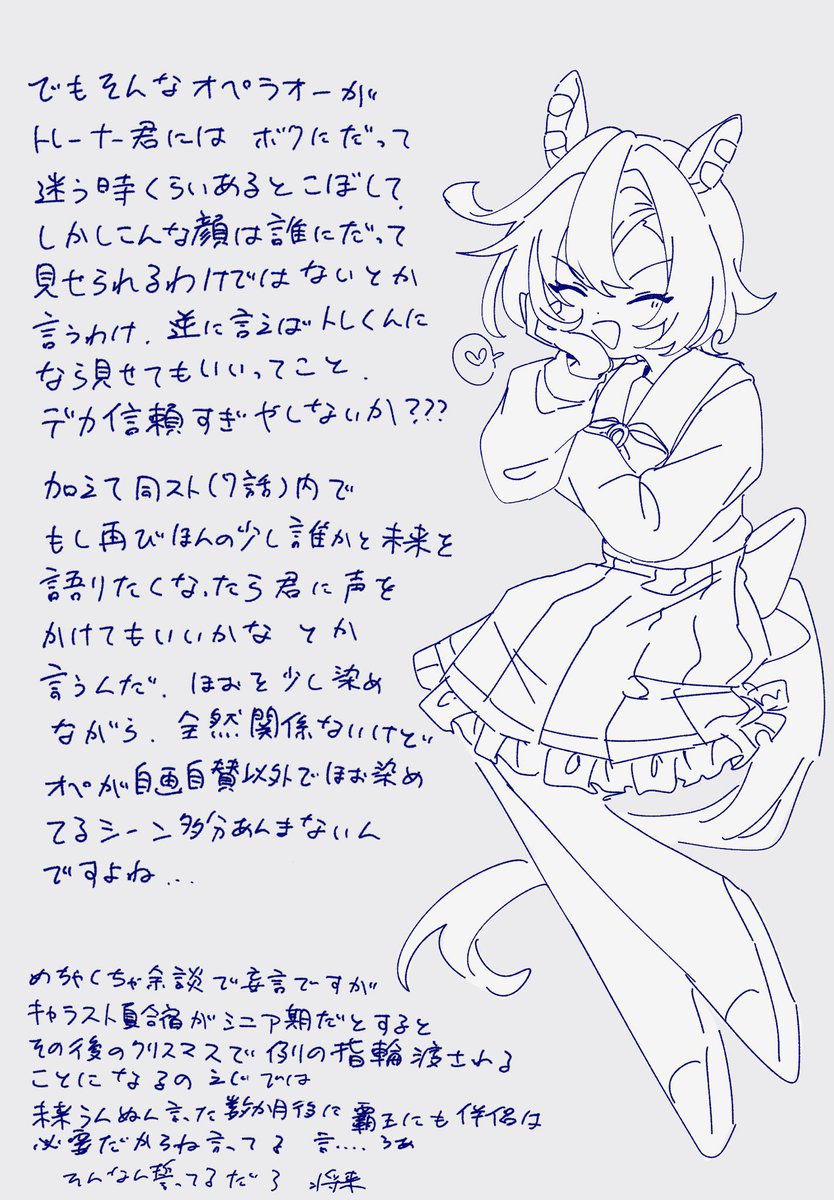 でもそんなオペラオーが
トレーナー君には ボクにだって
迷う時くらいあるとこぼして、
しかしこんな顔は誰にだって
見せられるわけではないとか
言うわけ、逆に言えばトレくんに
なら見せてもいいってこと、
デカ信頼すぎやしないか???
加えて同スト(7話)内で
もし再びほんの少し誰かと未来を
語りたくなったら君に声を
かけてもいいかな とか
言うんだ、ほおを少し染め
ながら、全然関係ないけど
オペが自画自賛以外でほお染め
てるシーン多分あんまないん
ですよね...
めちゃくちゃ余談で妄言ですが
キャラスト夏合宿がシニア期だとすると
その後のクリスマスで例の指輪渡される
ことになるの えぐでは
未来うんぬん言った数か月後に覇王にも伴侶は
必要だからね言ってる 言....ろぉ
そんなん誓ってるだろ 将来